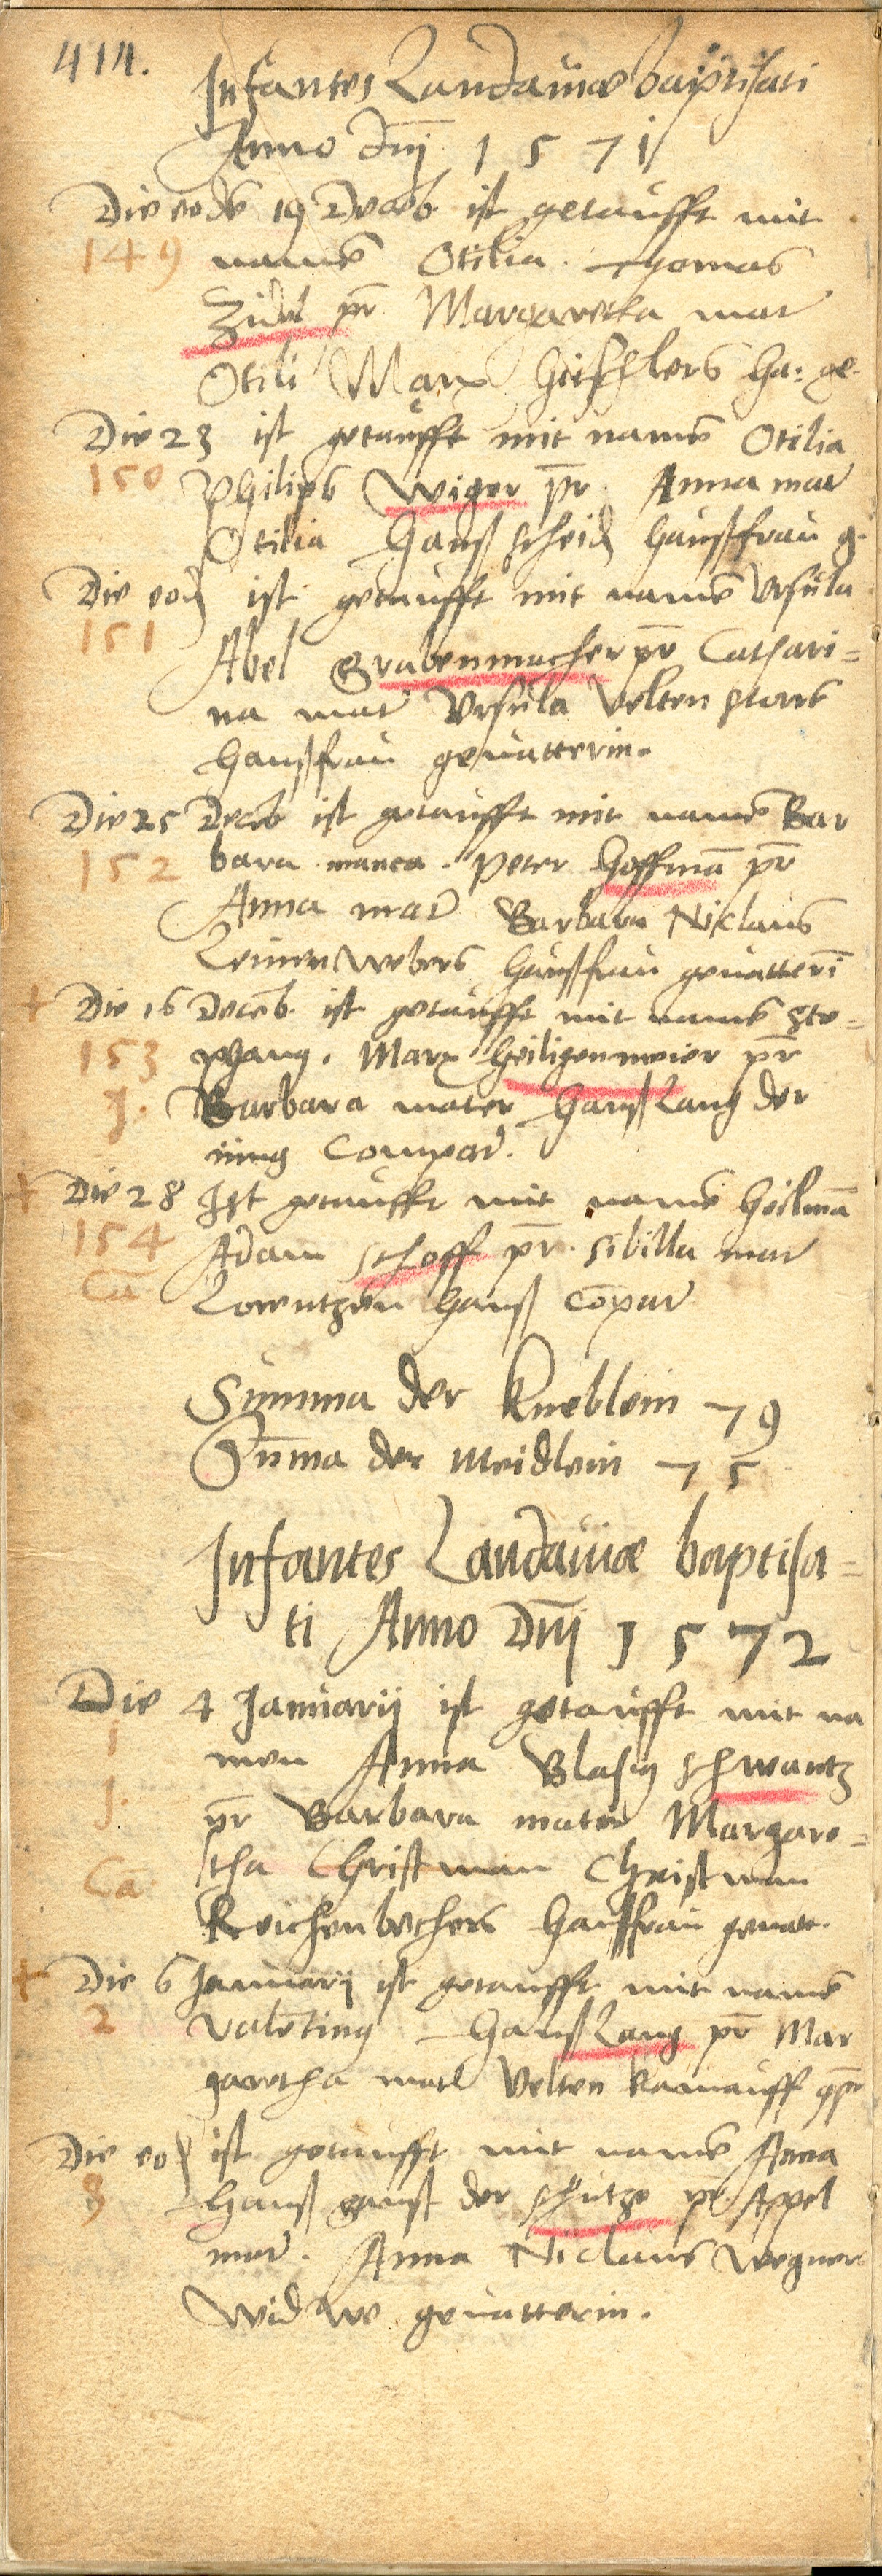 414.
Infantes Landauiæ baptisati
Anno dnj 1571
Die eodē 19 Deceb ist getaufft mit
149 namē Otilia. Thomas
Zidel pr Margaretha mat
Otili Marx Hüschlers ha: ge.
Die 23 ist getaufft mit namē Otilia
150 Philips Wiger pr Anna mat
Otilia Hanß Scheid haußfrau g.
Die eod ist getaufft mit namē Vrsula
151 Abel Grabenmacher pr Cathari=
na mat Vrsula Velten
haußfrau geuatterin.
Die 25 Deceb ist getaufft mit namē Bar
152 bara Peter Hoffmā pr
Anna mat Barbara Niclaus
Leinenwebers haußfrau geuatteri
+ Die 16 Deceb ist getaufft mit namē Ste=
153 phang. Marx Heiligenmeier pr
J. Barbara mater Hanß Lang der
iung Compar.
+ Die 28 Ist getaufft mit namē Heilmā
154 Adam Schoff pr. Sibilla mat
Ca Lorentzen Hanß Cōpar
Summa der Kneblein 79
Sum̄a der Meidlein 75
Infantes Landauiæ baptisa=
ti Anno Dnj 1572
Die 4 Januarij ist getaufft mit na
1 men Anna Blasig Schwantz
J. pr Barbara mater Margare=
Ca tha Christman Christman
Reichenbechers haußfrau geuatt.
+ Die 6 Januarij ist getaufft mit namē
2 Valēting Hanß Lang pr Mar
garetha mat Velten Kamauff
Die eod ist getaufft mit namē Anna
3 Hanß der Schutze pr. Appel
mat. Anna Niclaus Wegners
Widwe geuatterin.